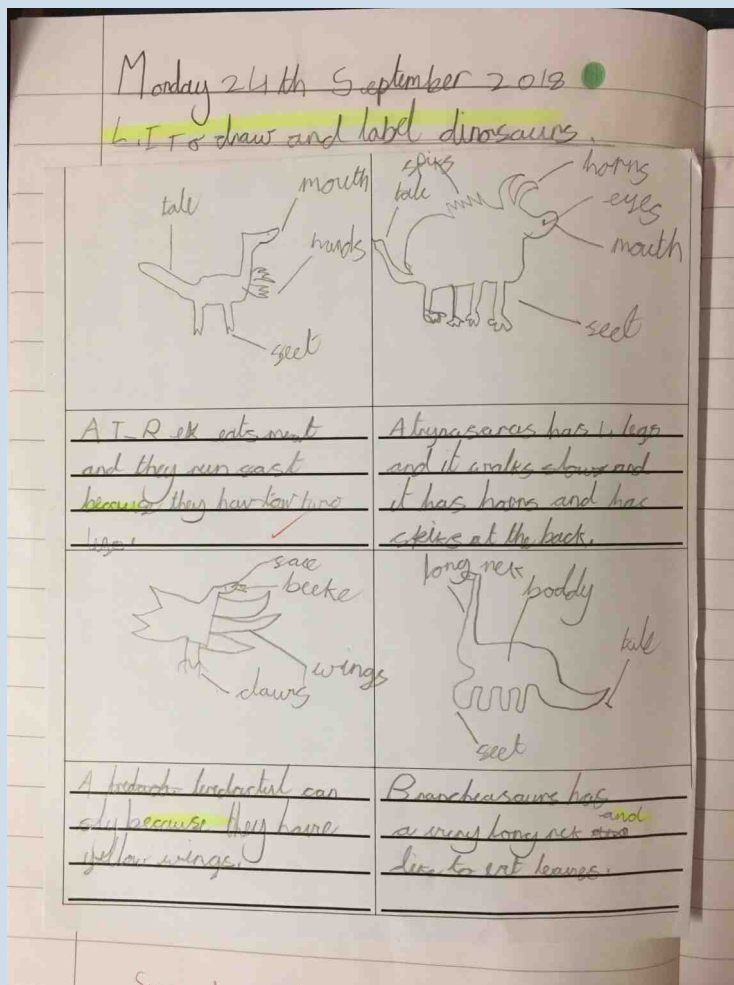 Monday 24th September 2018
L.I To draw and label dinosaurs.
tale
mouth
hands
seet
spiks
tale
horns
eyes
mouth
seet
A T-R ex eats meat
and they run sast
because they have tow two
legs.
A trynasaras has 4 legs
and it walks slow and
it has horns and has
skike at the back.
sace
beeke
wings
claws
long nek
boddy
tale
seet
A teredactul can
sly because they have
yellow wings.
Brancheasaurs has
a very long nek and
like to eat leaves.